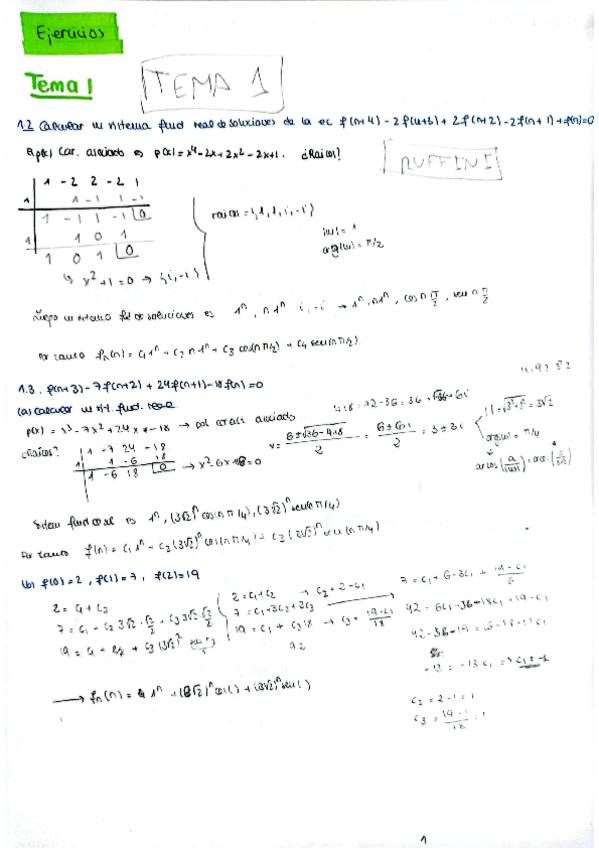 Ejercicios
Tema 1
TEMA 1
1.2 Calcular un sistema fund real de soluciones de la ec f(n+4) - 2f(n+3) + 2f(n+2) - 2f(n+1) + f(n) = 0
car. asociado es p(x) = x⁴ - 2x + 2x² - 2x + 1. ¿Raices?
RUFFINI
1 -2 2 -2 1
1 1 -1 1 -1
1 -1 1 -1 0
1 1 0 1
1 0 1 0
raices = {1, 1, i, -i}
|w| = 1
arg(w) = π/2
x² + 1 = 0 → {i, -i}
Luego un sistema fd de soluciones es 1ⁿ, n1ⁿ i, -i → 1ⁿ, n1ⁿ, cos n π/2, sen n π/2
Por tanto fn(n) = c₁1ⁿ + c₂ n1ⁿ + c₃ cos(nπ/2) + c₄ sen(nπ/2)
1.3. f(n+3) - 7f(n+2) + 24f(n+1) - 18f(n) = 0
(a) Calcular un sist. fund. real.
p(x) = x³ - 7x² + 24x - 18 → pol caract asociado
¿Raices?
1 -7 24 -18
1 1 -6 18
1 -6 18 0
→ x² - 6x + 18 = 0
4·18 = 72 - 36 = 36
x = 6 ± √36 - 4·18 / 2 = 6 ± 6i / 2 = 3 ± 3i
| | = √3² + 3² = 3√2
arg(w) = π/4
Sistem fund real es 1ⁿ, (3√2)ⁿ cos(nπ/4), (3√2)ⁿ sen(nπ/4)
Por tanto f(n) = c₁1ⁿ + c₂(3√2)ⁿ cos(nπ/4) + c₃(3√2)ⁿ sen(nπ/4)
(b) f(0) = 2, f(1) = 7, f(2) = 19
2 = c₁ + c₂
7 = c₁ + c₂ 3√2 · √2/2 + c₃ 3√2 · √2/2
2 = c₁ + c₂ → c₂ = 2 - c₁
7 = c₁ + 3c₂ + 3c₃
19 = c₁ + c₃ 18 → c₃ = 19 - c₁ / 18
7 = c₁ + 6 - 3c₁ + 19 - c₁ / 6
42 = 6c₁ + 36 - 18c₁ + 19 - c₁
-13 = -13c₁
c₂ = 2 - 1 = 1
c₃ = 19 - 1 / 18 = 1
1